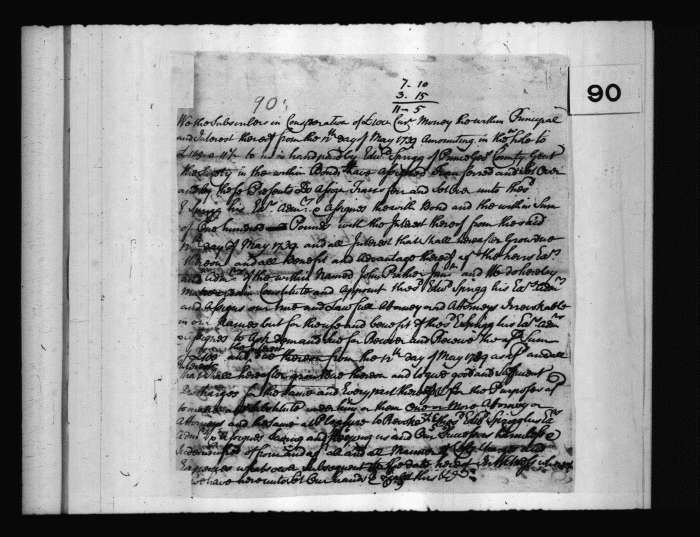 90
7-10
3-15
11-5
90
We the Subscribers in Consideration of £100 Curr Money the within Principal
and Interest thereof from the 12th day of May 1739 Amounting in the whole to
to us in hand paid by Edwd Sprigg of Prince Geos County Gent
the Surety in the within Bond have Assigned Transferred and Set Over
and by these Presents Do Assign Transfer and Set Over unto the sd
E Sprigg his Exrs Admrs & Assignes the with Bond and the within Sum
of One hundred Pounds with the Interest thereof from the said
12th day of May 1739 and all Interest that Shall hereafter Grow due
thereon and all Benefit and Advantage thereof agt the heirs Exrs
and Admrs of the within Named John Prather and We do hereby
Constitute and Appoint the sd Edwd Sprigg his Exrs Admrs
and Assigns our true and Lawfull Attorney and Attorneys Irrevokable
in our Names but for the use and benefit of the sd E Sprigg his Exrs Admrs
Assignes to Ask demand Sue for Recover and Receive the afd Sum
of £100 and due thereon from the 12th day of May 1739 as afd and all
that Shall hereafter grow due thereon and to give good and Sufficient
Discharges for the Same and Every part thereof & for the Purposes afd
to make Substitute under him or them One or More Attorney or
Attorneys and the Same at Pleasure to Revoke the sd Edwd Sprigg his Exrs
Admrs Assignes Saving and Keeping us and Our
Indemnifyed of from and agt all and all Manner of Charges and
Expences whatsoever Subsequent to the date hereof In Witness whereof
we have hereunto Set Our hands this